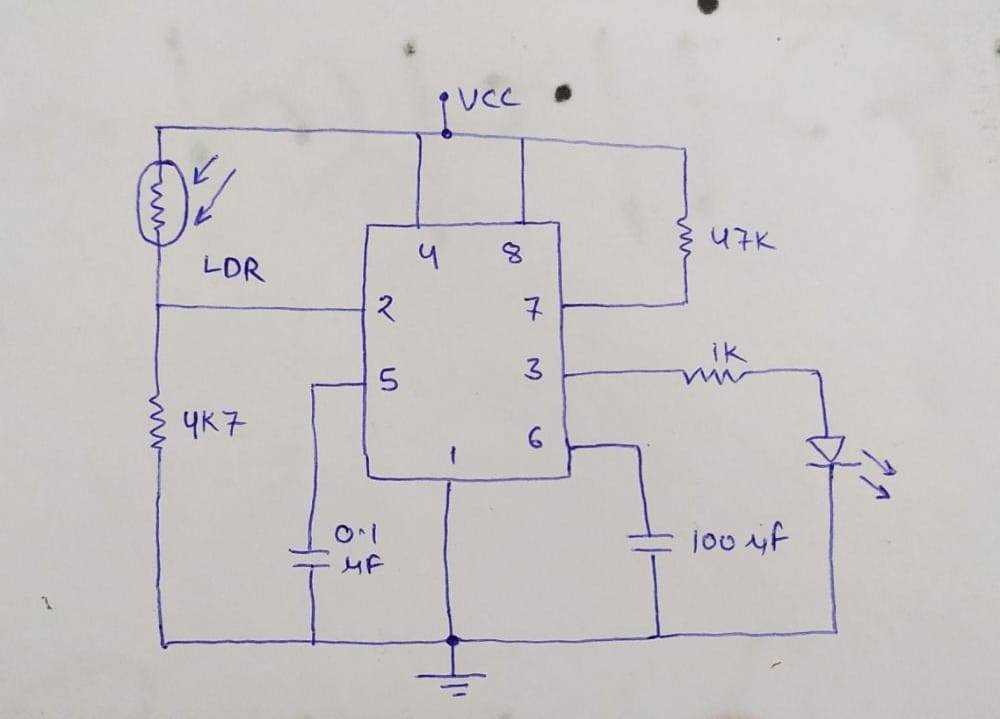 VCC
4 8
47K
LDR
2 7
5 3
1K
4K7
6
1
0.1
µF
100 µF